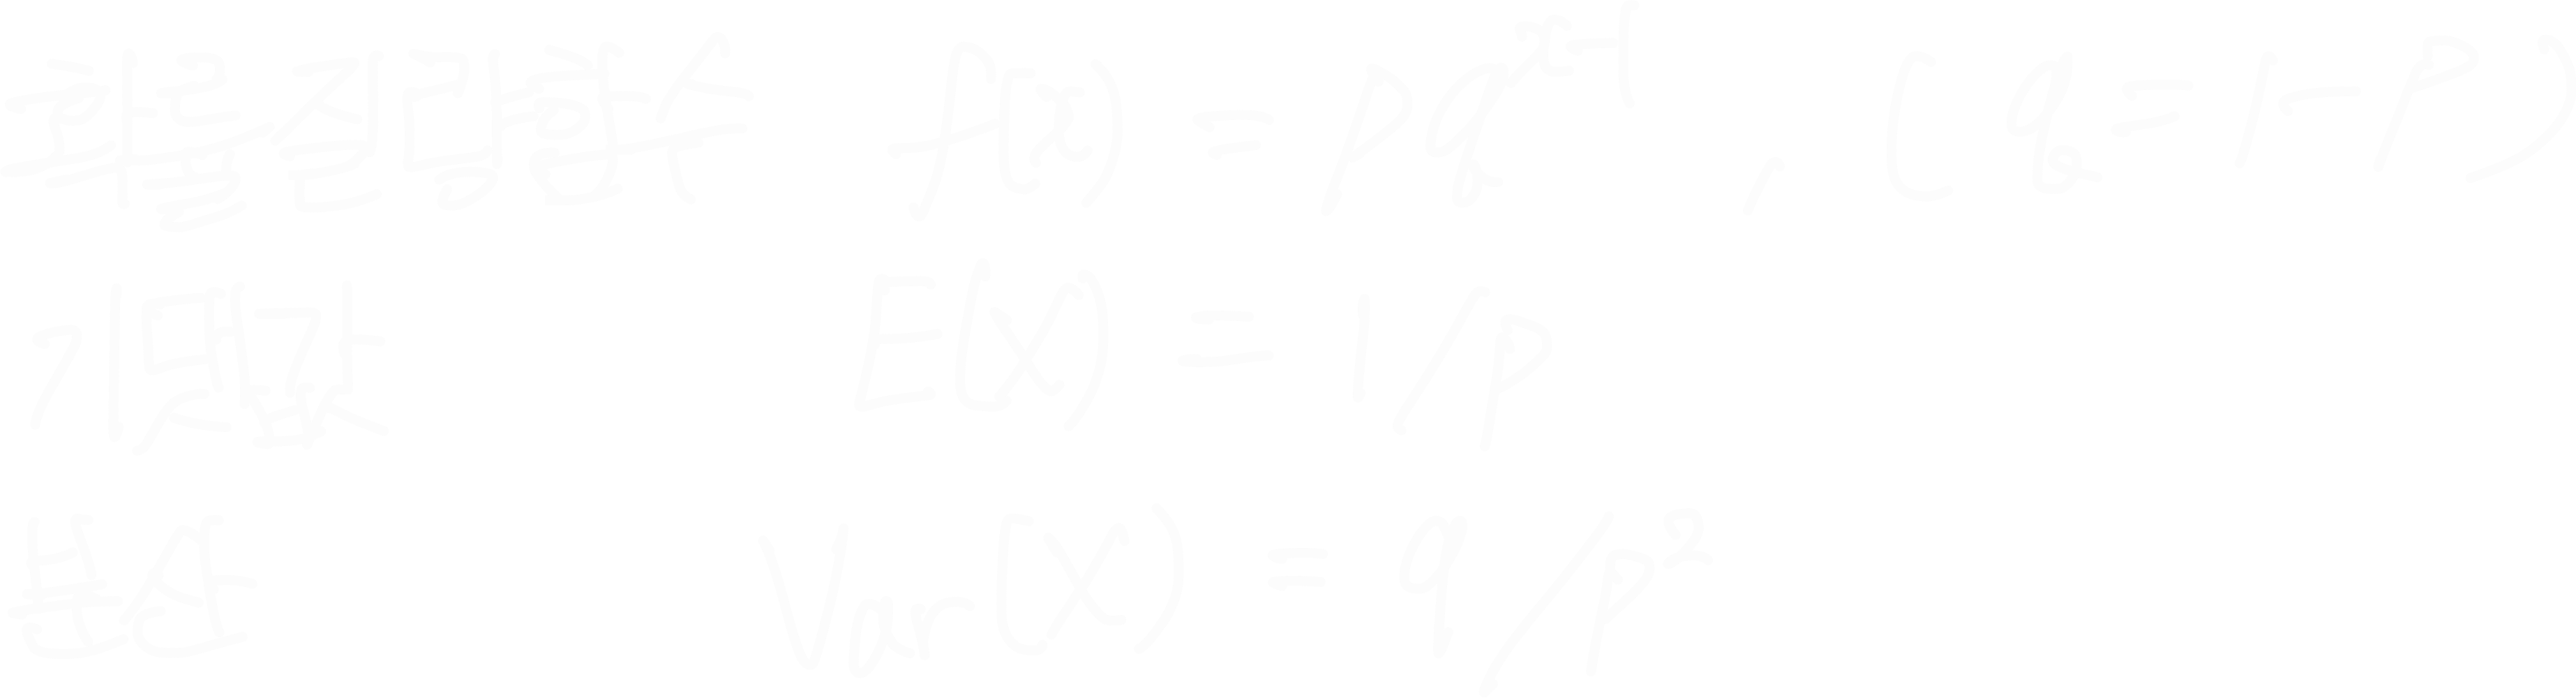 확률질량함수 f(x) = pq^{x-1} , (q = 1-p)
기댓값 E(X) = 1/p
분산 Var(X) = q/p²